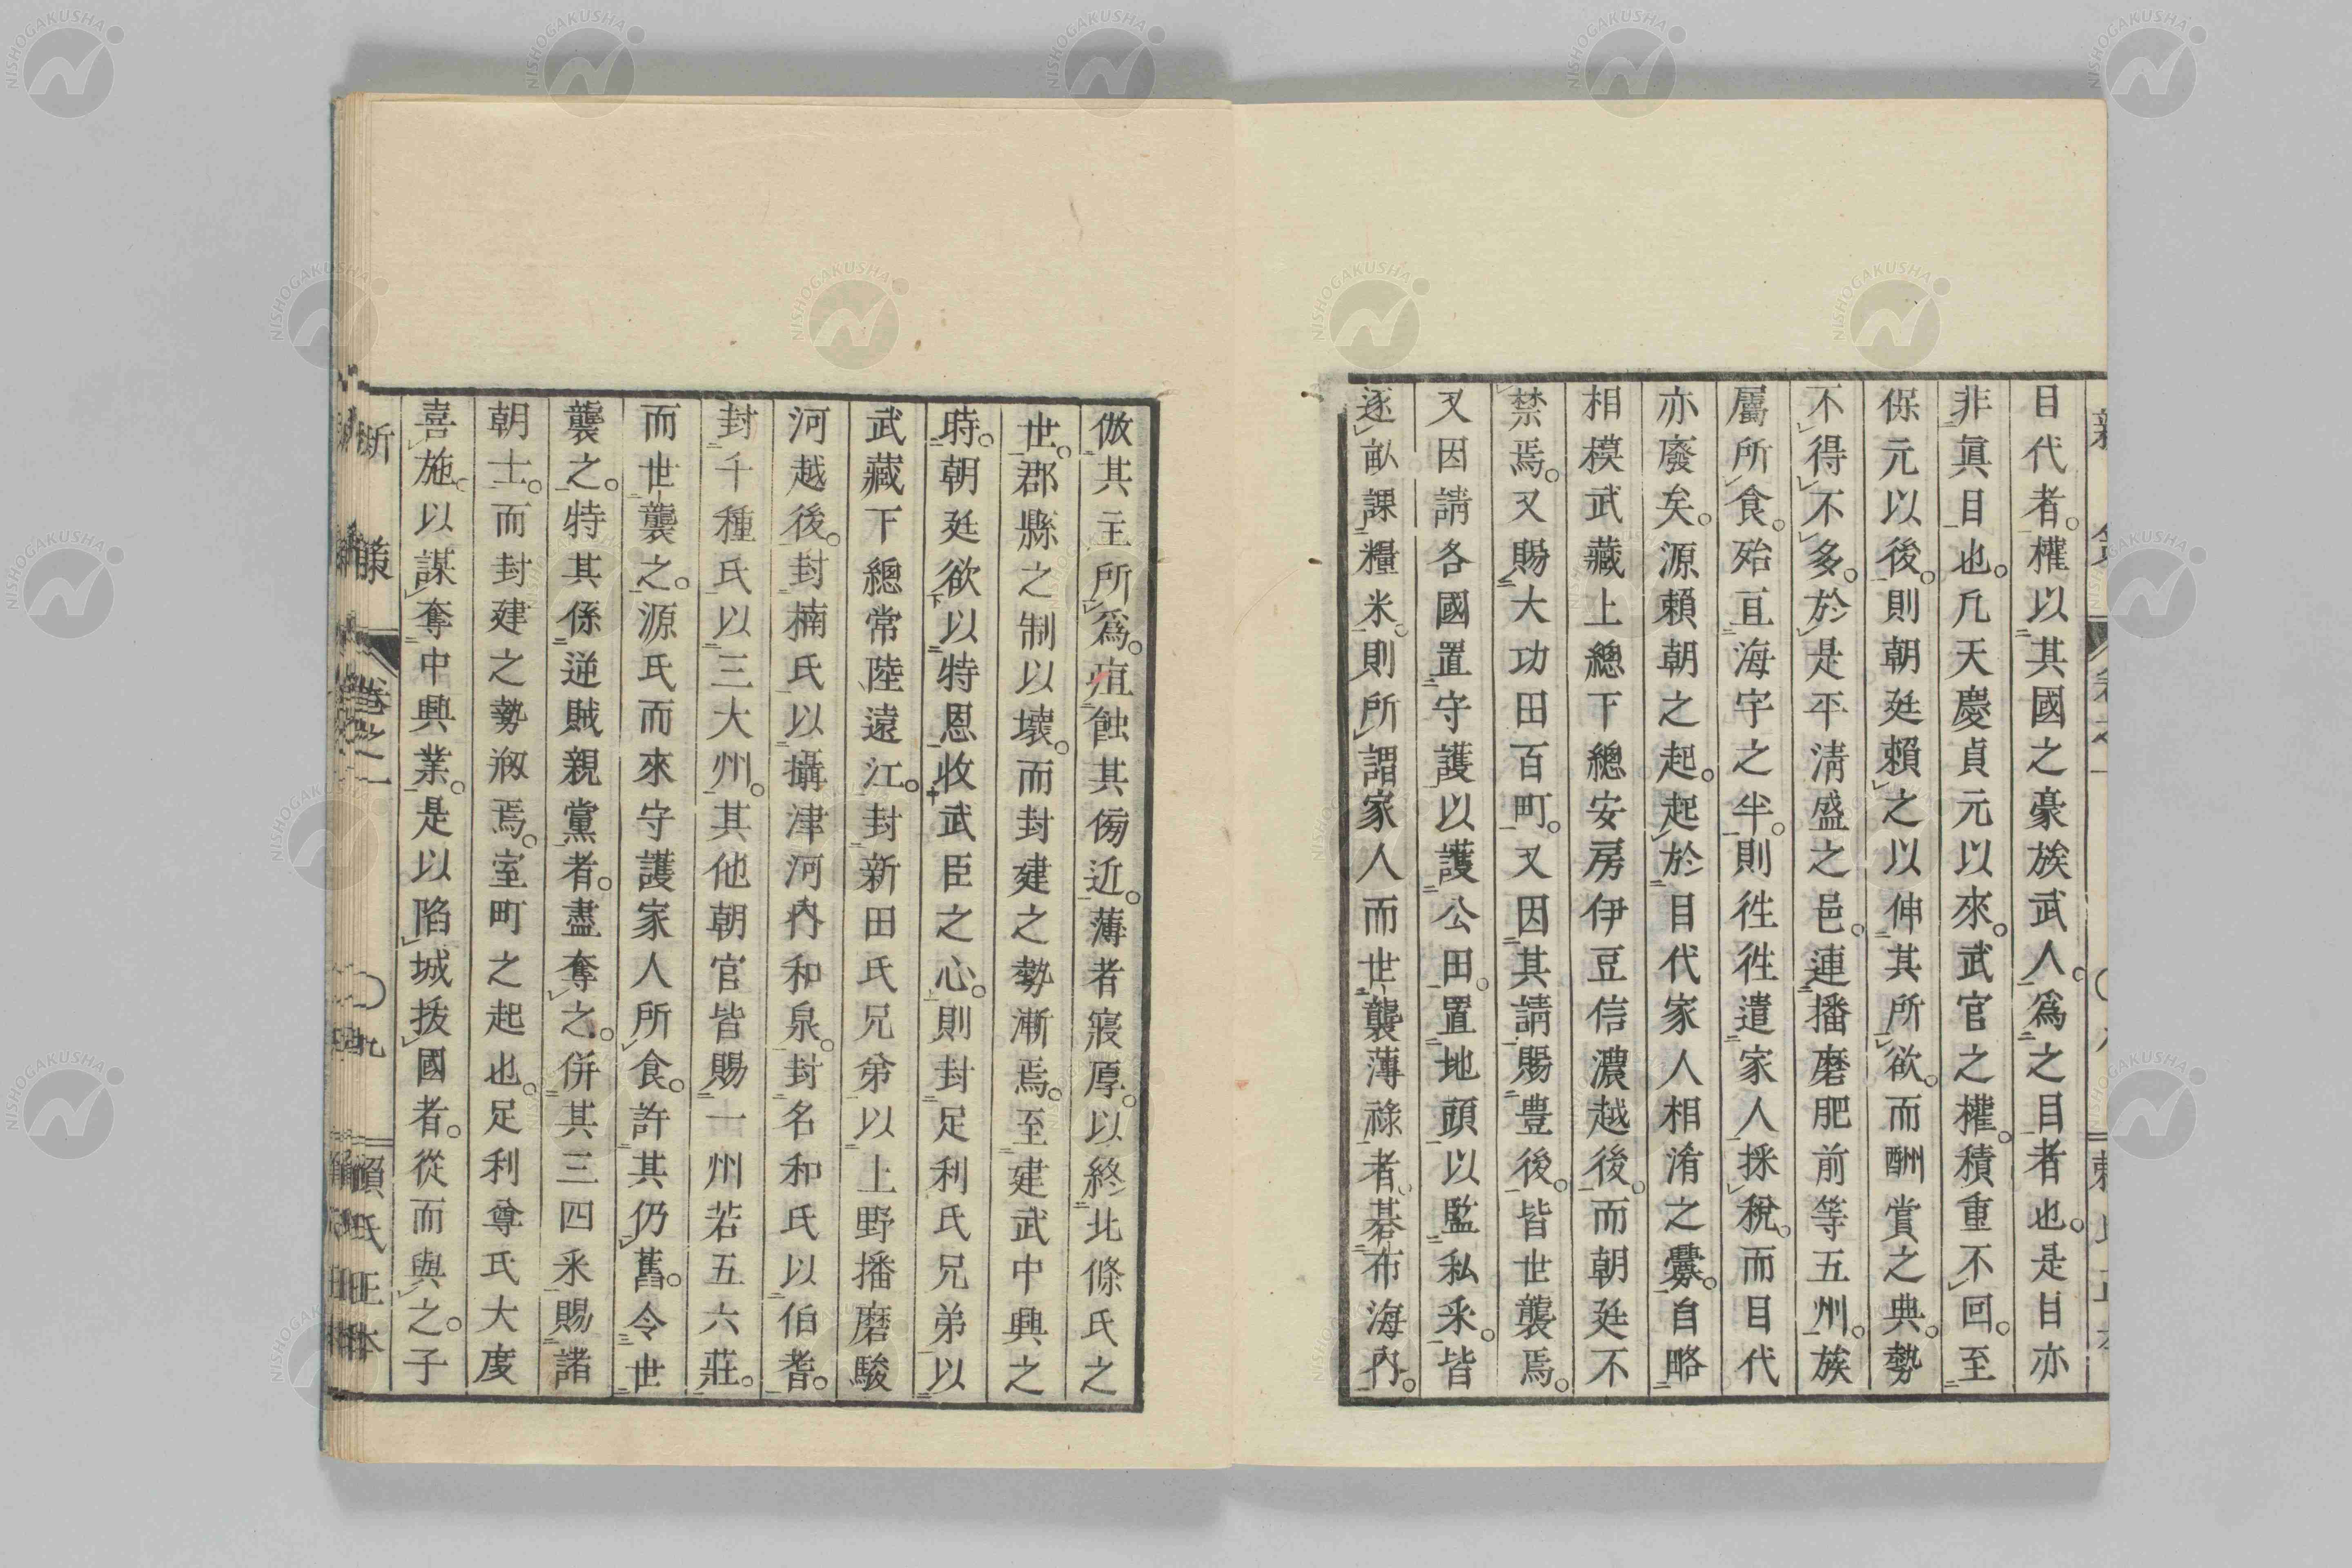 目代者。權以其國之豪族武人。爲之目者也。是目亦
非眞目也。凢天慶貞元以來。武官之權。積重不回。至
保元以後。則朝廷賴之以伸其所欲。而酬賞之典。勢
不得不多。於是平淸盛之邑。連播磨肥前等五州。族
屬所食。殆亘海宇之半。則徃徃遣家人採稅。而目代
亦廢矣。源賴朝之起。起於目代家人相淆之釁。自略
相模武藏上總下總安房伊豆信濃越後。而朝廷不
禁焉。又賜大功田百町。又因其請賜豊後。皆世襲焉。
又因請各國置守護以護公田。置地頭以監私釆。皆
逐畝課糧米。則所謂家人而世襲薄祿者、碁布海内。
倣其主所爲。疽蝕其傍近。薄者寢厚。以終北條氏之
世。郡縣之制以壞。而封建之勢漸焉。至建武中興之
時。朝廷欲以特恩收武臣之心。則封足利氏兄弟以
武藏下總常陸遠江。封新田氏兄弟以上野播磨駿
河越後。封楠氏以攝津河内和泉。封名和氏以伯耆。
封千種氏以三大州。其他朝官皆賜一州若五六莊。
而世襲之。源氏而來守護家人所食。許其仍舊。令世
襲之。特其係逆賊親黨者。盡奪之。併其三四釆賜諸
朝士。而封建之勢剏焉。室町之起也。足利尊氏大度
喜施。以謀奪中興業。是以陷城拔國者。從而與之。子
新策 卷之一 〇九 賴氏正本